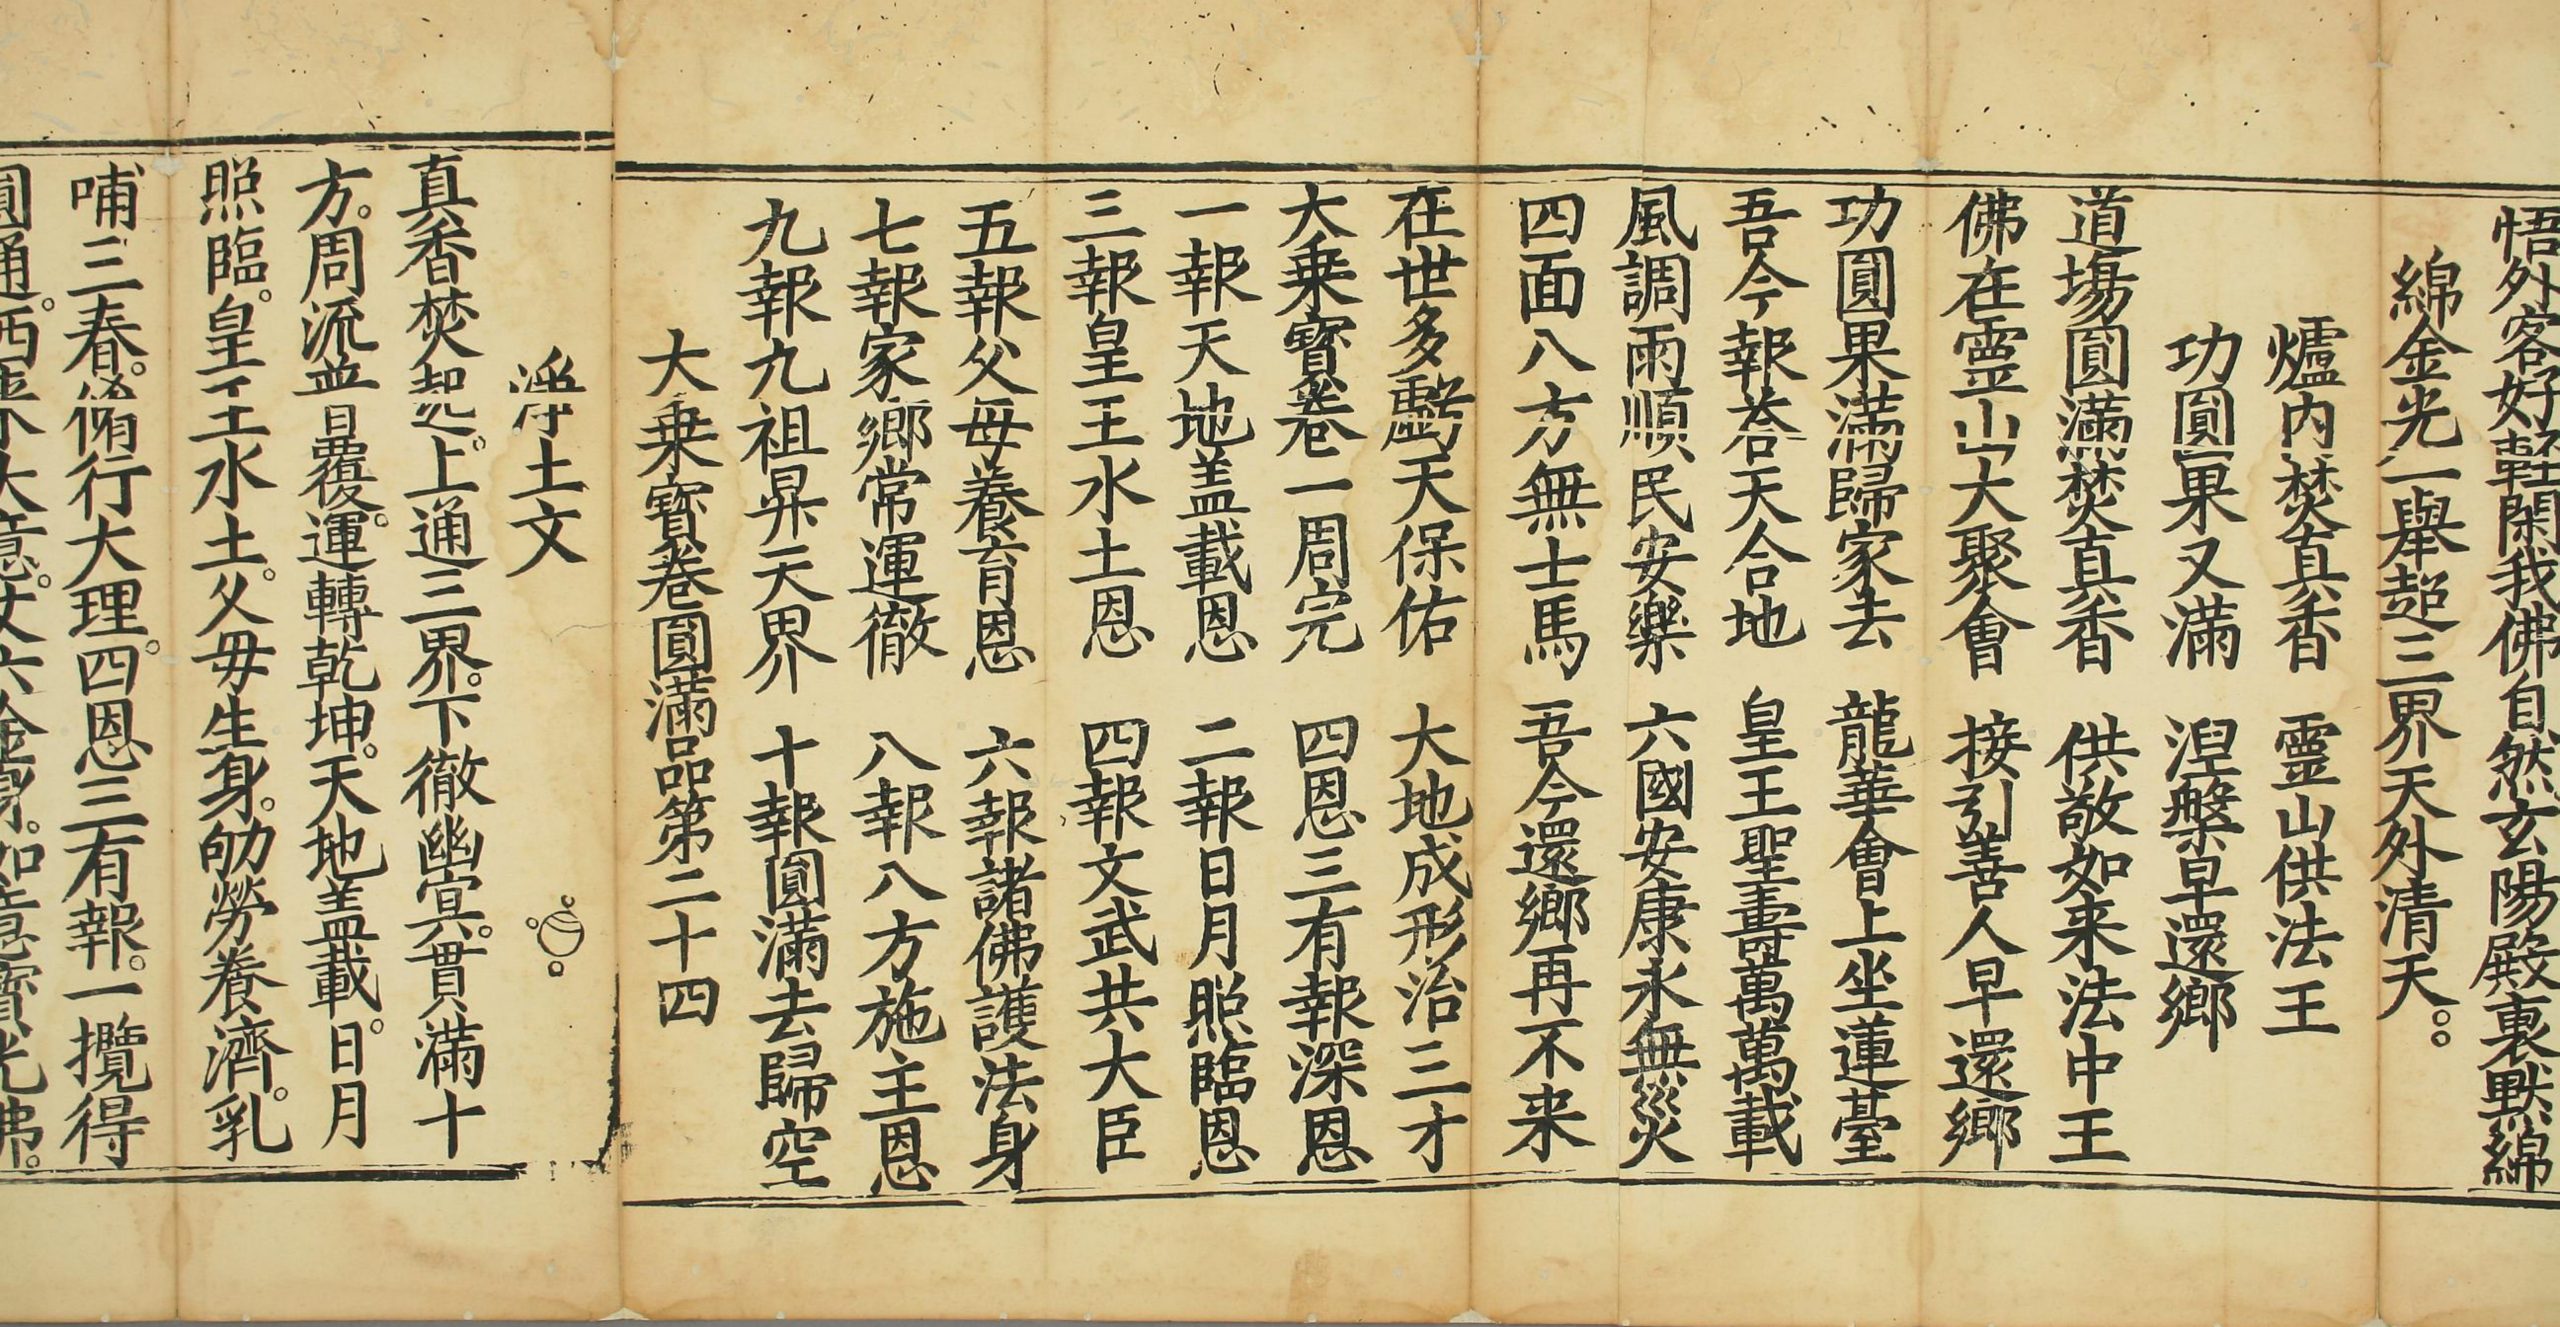 悟外客好輕閑我佛自然玄陽殿裏默綿
綿金光一舉超三界天外清天。。
爐内焚真香 靈山供法王
功圓果又滿 涅槃早還鄉
道塲圓滿焚真香 供敬如来法中王
佛在靈山大聚會 接引善人早還鄉
功圓果滿歸家去 龍華會上坐蓮臺
吾今報荅天合地 皇王聖壽萬萬載
風調雨順民安樂 六國安康永無災
四面八方無士馬 吾今還鄉再不来
在世多虧天保佑 大地成形治三才
大乗寳卷一周完 四恩三有報深恩
一報天地盖載恩 二報日月照臨恩
三報皇王水土恩 四報文武共大臣
五報父母養育恩 六報諸佛護法身
七報家鄉常運徹 八報八方施主恩
九報九祖昇天界 十報圓滿去歸空
大乗寳卷圓滿品第二十四
淨土文
真香焚起。上通三界。下徹幽冥。貫滿十
方。周流並覆。運轉乾坤。天地盖載。日月
照臨。皇王水土。父母生身。劬勞養濟。乳
哺三春。脩行大理。四恩三有報。一攬得
圓通。西来大意。丈六金身。如意寳光佛。